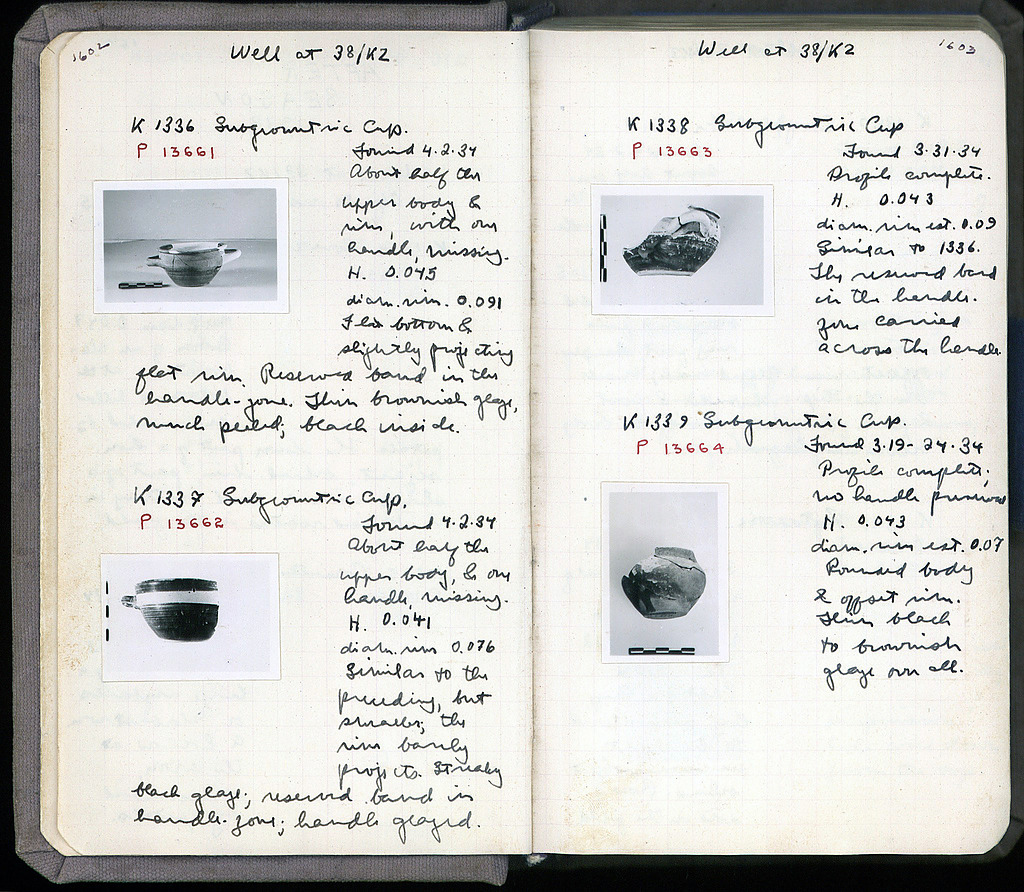 1602
Well at 38/K2
K 1336 Subgeometric Cup.
P 13661
Found 4.2.34
About half the
upper body &
rim, with one
handle, missing.
H. 0.045
diam. rim. 0.091
Flat bottom &
slightly projecting
flat rim. Reserved band in the
handle-zone. Thin brownish glaze,
much peeled; black inside.
K 1337 Subgeometric Cup.
P 13662
Found 4.2.34
About half the
upper body, & one
handle, missing.
H. 0.041
diam. rim 0.076
Similar to the
preceding, but
smaller; the
rim barely
projects. Streaky
black glaze; reserved band in
handle-zone; handle glazed.
1603
Well at 38/K2
K 1338 Subgeometric Cup
P 13663
Found 3.31.34
Profile complete.
H. 0.043
diam. rim est. 0.09
Similar to 1336.
The reserved band
in the handle-
zone carried
across the handle.
K 1339 Subgeometric Cup.
P 13664
Found 3.19-24.34
Profile complete;
no handle preserved
H. 0.043
diam. rim est. 0.07
Rounded body
& offset rim.
Thin black
to brownish
glaze over all.